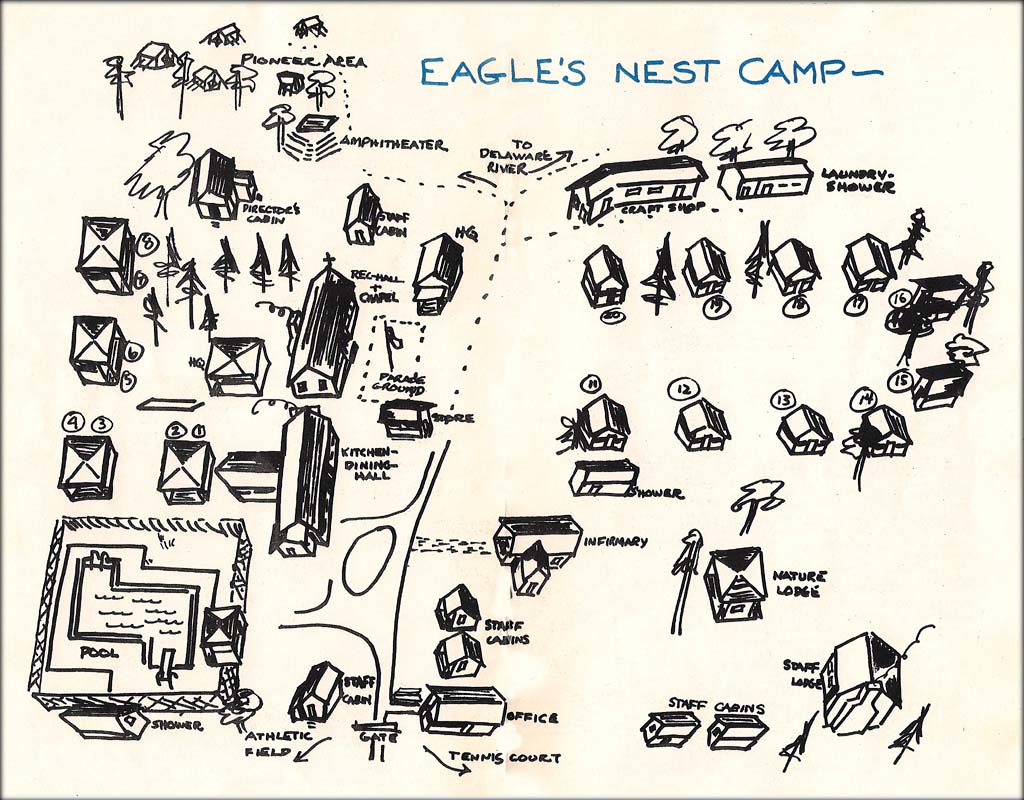 EAGLE'S NEST CAMP—
PIONEER AREA
AMPHITHEATER
TO
DELAWARE
RIVER
LAUNDRY-
SHOWER
CRAFT SHOP
DIRECTOR'S
CABIN
STAFF
CABIN
HQ
8
7
REC-HALL
+
CHAPEL
20
19
18
17
16
6
5
HQ
PARADE
GROUND
STORE
15
11
12
13
14
4 3
2 1
KITCHEN-
DINING-
HALL
SHOWER
INFIRMARY
NATURE
LODGE
STAFF
CABINS
POOL
STAFF
LODGE
STAFF
CABIN
STAFF CABINS
SHOWER
OFFICE
ATHLETIC
FIELD
GATE
TENNIS COURT